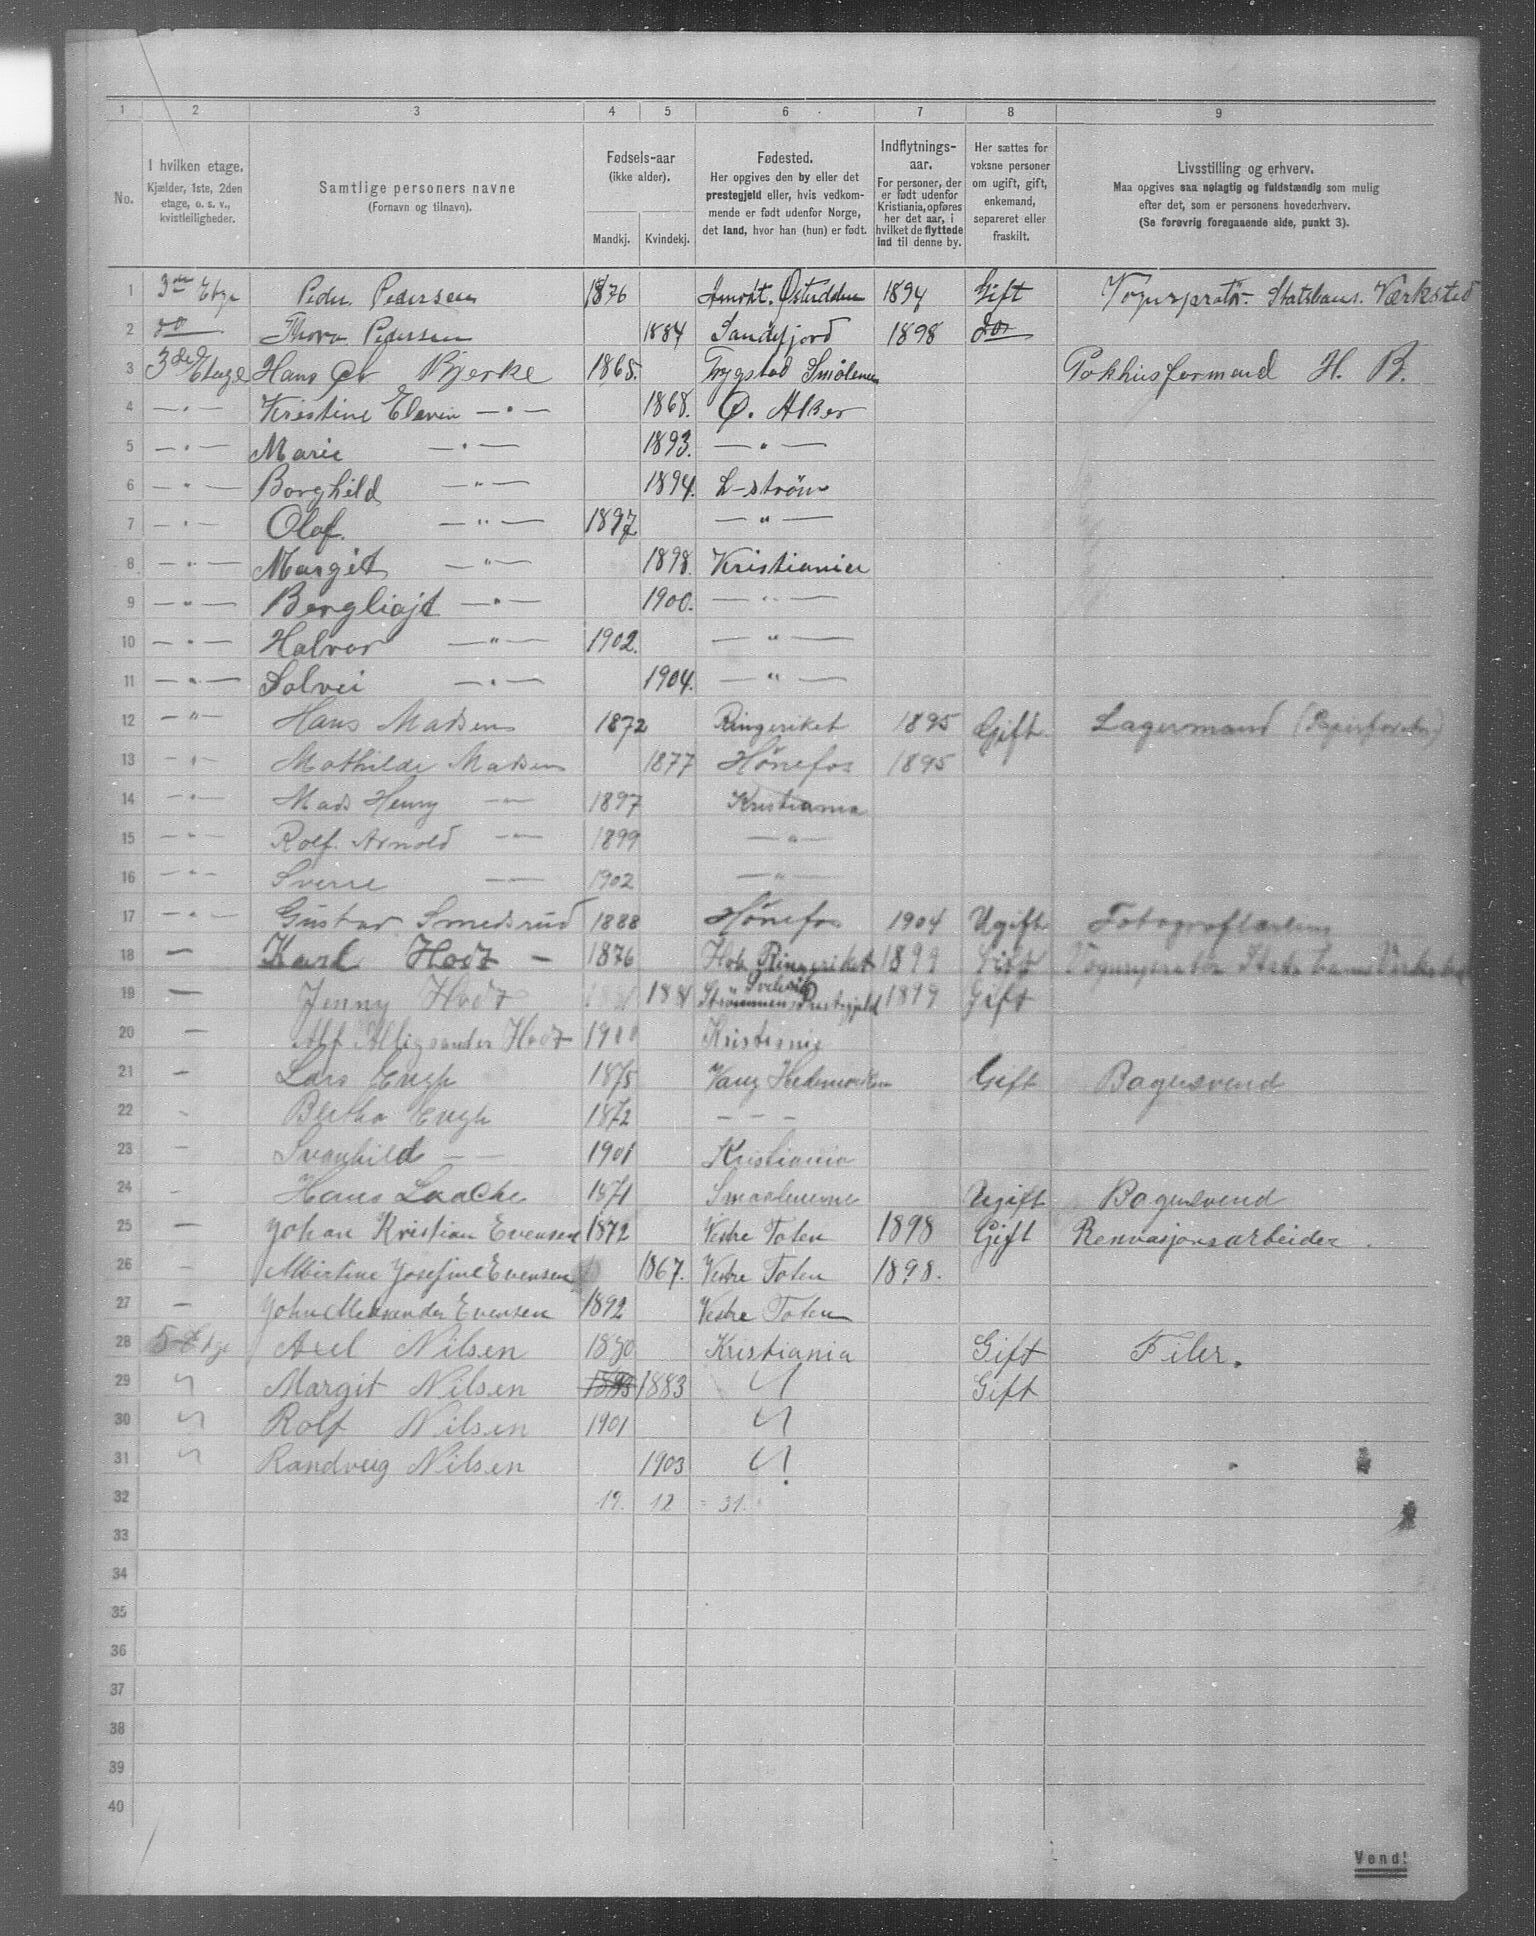 1 2 3 4 5 6 7 8 9
No.
I hvilken etage.
Kjælder, 1ste, 2den
etage, o. s. v.,
kvistleiligheder.
Samtlige personers navne
(Fornavn og tilnavn).
Fødsels-aar
(ikke alder).
Mandkj. Kvindekj.
Fødested.
Her opgives den by eller det
prestegjeld eller, hvis vedkom-
mende er født udenfor Norge,
det land, hvor han (hun) er født.
Indflytnings-
aar.
For personer, der
er født udenfor
Kristiania, opføres
her det aar, i
hvilket de flyttede
ind til denne by.
Her sættes for
voksne personer
om ugift, gift,
enkemand,
separeret eller
fraskilt.
Livsstilling og erhverv.
Maa opgives saa nøiagtig og fuldstændig som mulig
efter det, som er personens hovederhverv.
(Se forøvrig foregaaende side, punkt 3).
1 3die Etge Peder Pedersen 1876 1894 Gift Statsban. Værksted
2 do Thora Pedersen 1884 Sandefjord 1898 do
3 3die Etage Hans Bjerke 1865. Trygstad Smålenen Pakhusformand H. B.
4 — " — Kristine Elevin — " — 1868. Ø. Alker
5 — " — Marie — " — 1893. — " —
6 — " — Borghild — " — 1894. L-strøm
7 — " — Olaf. — " — 1897 — " —
8 — " — Margit — " — 1898. Kristiania
9 — " — Bergliojt — " — 1900. — " —
10 — " — Halvor — " — 1902. — " —
11 — " — Solvei — " — 1904. — " —
12 — " — Hans Madsen 1872 Ringeriket 1895 Gift Lagermand
13 — " — Mathilde Madsen 1877 Hønefos 1895
14 — " — Mads Henry — " — 1897 Kristiania
15 — " — Rolf Arnold — " — 1899 — " —
16 — " — Sverre — " — 1902 — " —
17 — " — Gustav Smedsrud 1888 Hønefos 1904 Ugift
18 — Karl Hodt — 1876 Hol Ringeriket 1899 Gift
19 — Jenny Hodt 1881 1899 Gift
20 — Alf Alligsander Hodt 1900 Kristiania
21 — Lars Engh 1875 Vang Hedmarken Gift Bagersvend
22 - Bertha Engh 1872 - - -
23 — Svanhild — — 1901 Kristiania
24 - Hans Laache 1871 Smaalenene Ugift Bagersvend
25 — Johan Kristian Evensen 1872 Vestre Toten 1898 Gift Renvasjonsarbeider.
26 - Albertine Josefine Evensen 1867. Vestre Toten 1898.
27 — John Alexsander Evensen 1892 Vestre Toten
28 5 Etge Axel Nilsen 1880 Kristiania Gift Filer.
29 " Margit Nilsen 1883 1883 " Gift
30 " Rolf Nilsen 1901 "
31 " Randveig Nilsen 1903 "
32 19. 12 = 31.
33
34
35
36
37
38
39
40
Vend!